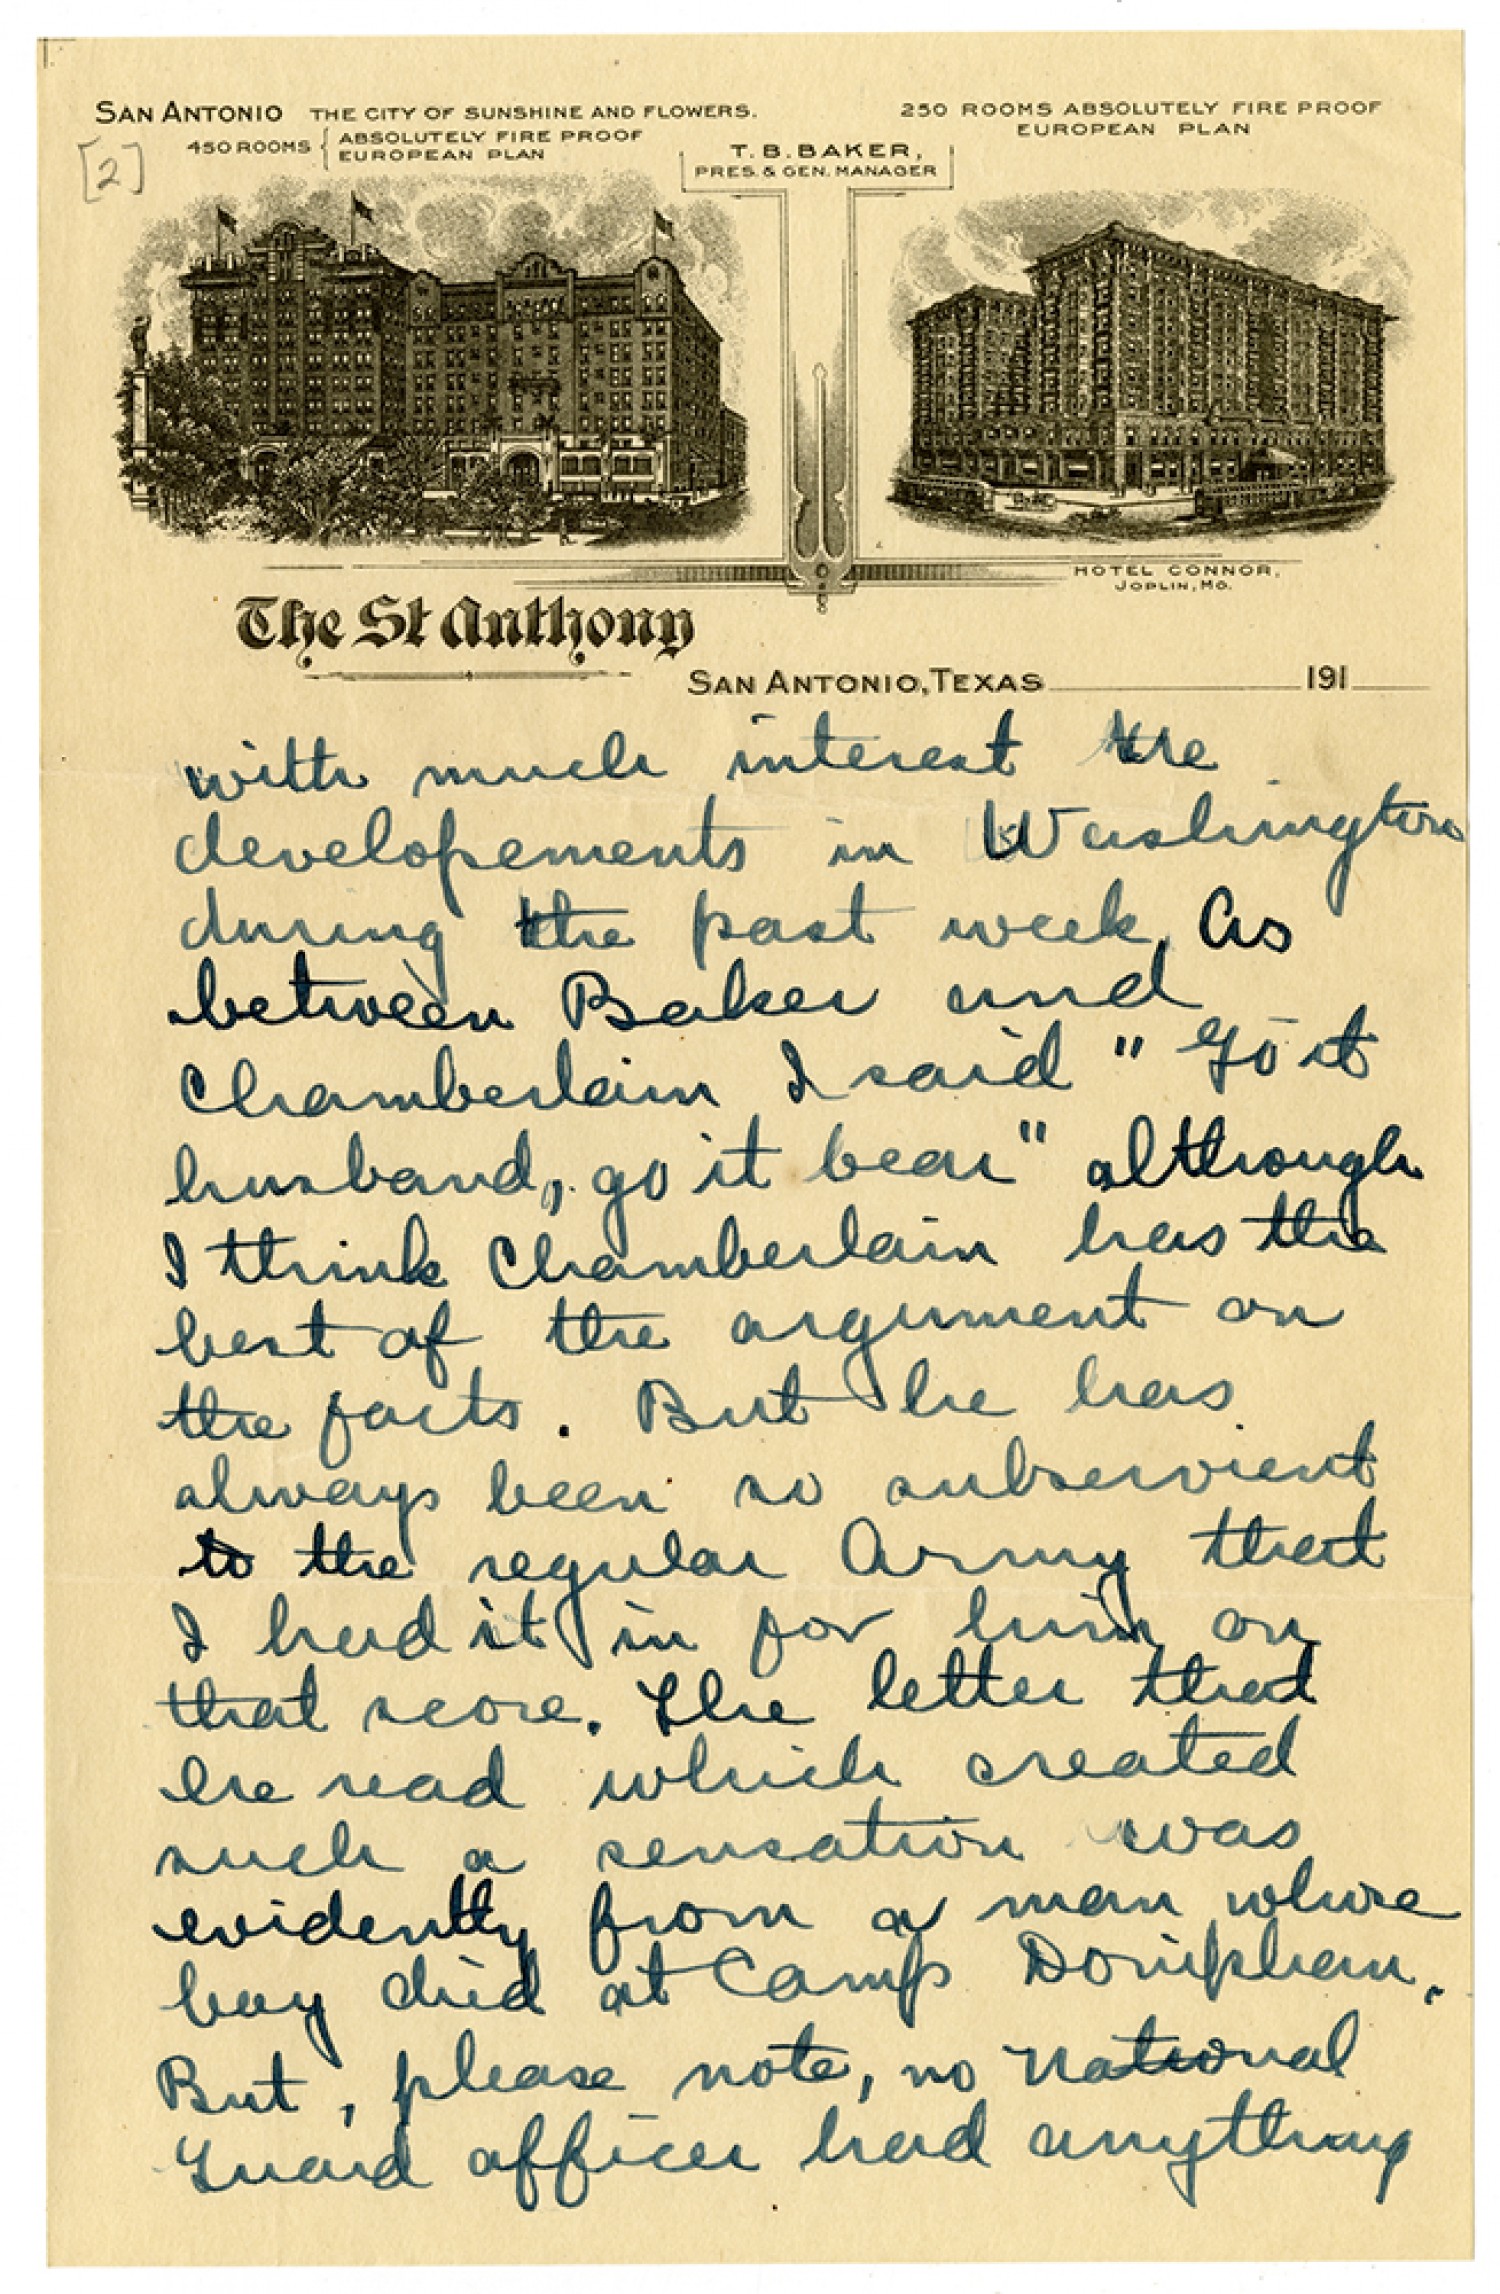 SAN ANTONIO THE CITY OF SUNSHINE AND FLOWERS.
450 ROOMS { ABSOLUTELY FIRE PROOF
EUROPEAN PLAN
[2]
T. B. BAKER,
PRES. & GEN. MANAGER
250 ROOMS ABSOLUTELY FIRE PROOF
EUROPEAN PLAN
HOTEL CONNOR,
JOPLIN, MO.
The St Anthony
SAN ANTONIO, TEXAS 191
with much interest the
developements in Washington
during the past week. As
between Baker and
Chamberlain I said " Go it
husband, go it bear" although
I think Chamberlain has the
best of the argument on
the facts. But he has
always been so subservient
to the regular Army that
I had it in for him on
that score. The letter that
he read which created
such a sensation was
evidently from a man whose
boy died at Camp Doniphan.
But, please note, no National
Guard officer had anything